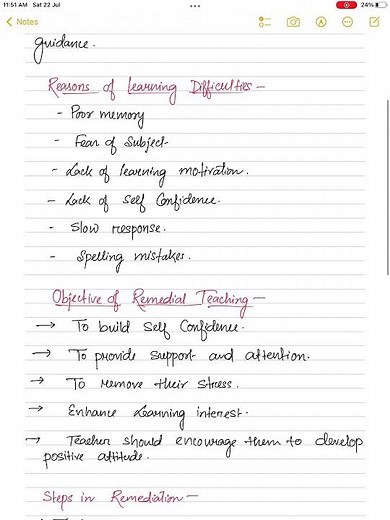 11:51 AM Sat 22 Jul
24%
Notes
guidance.
Reasons of Learning Difficulties -
- Poor memory
- Fear of Subject
- Lack of learning motivation.
- Lack of Self Confidence.
- Slow response.
- Spelling mistakes.
Objective of Remedial Teaching -
→ To build Self Confidence.
→ To provide support and attention.
→ To remove their stress.
→ Enhance Learning interest.
→ Teacher should encourage them to develop
positive attitude.
Steps in Remediation -